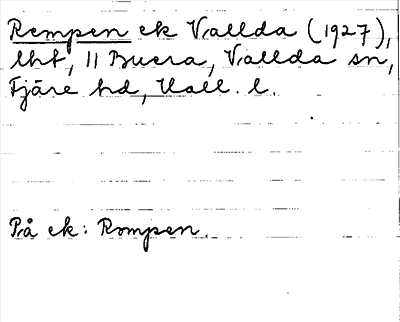 Rempen ek Vallda (1927),
lht, 11 Buera, Vallda sn,
Fjäre hd, Hall. l.
På ek: Rompen.